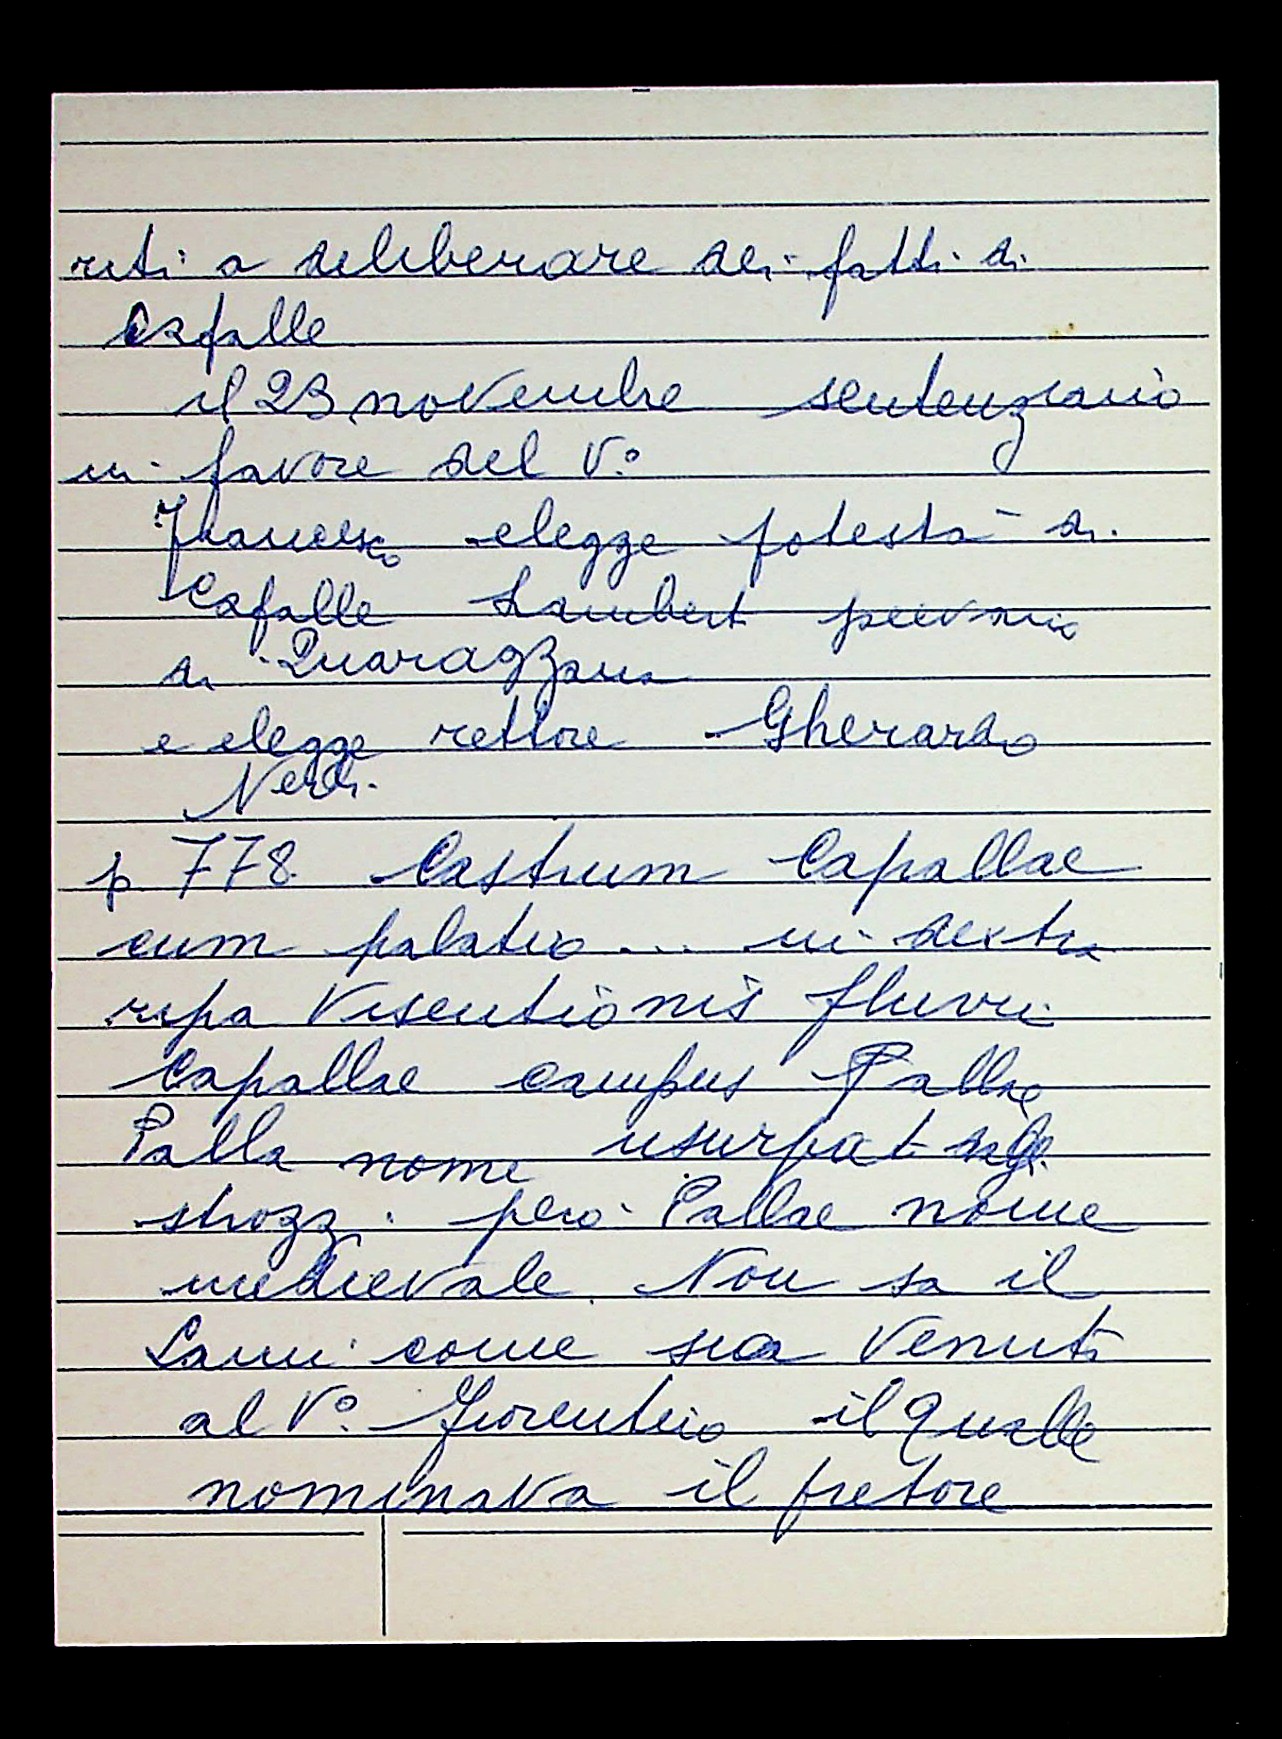 riti a deliberare dei fatti di
Capalle
il 23 novembre sentenziano
in favore del V.º
Francesco elegge potestà di
Capalle Lambert pievano
di Quaragzana
e elegge rettore Gherardo
Nerli
p 778 Castrum Capallae
cum palatio ... in dextra
ripa Visentionis fluvii
Capallae campus Pallae
Palla nome usurpat
strozzi però Pallae nome
medievale. Non sa il
Lami come sia venuti
al Vº. Fiorentino il qualle
nominava il pretore